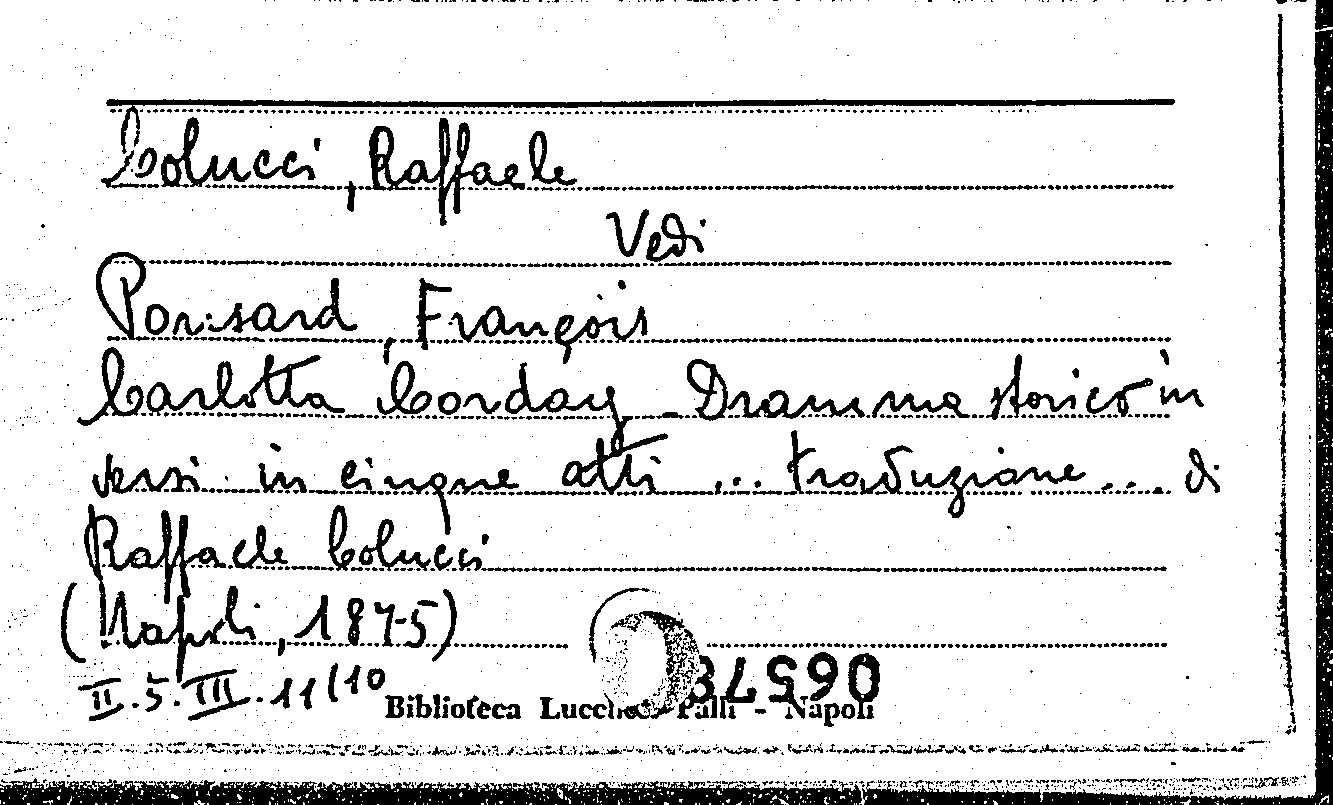 Colucci, Raffaele
Vedi
Ponsard, François
Carlotta Corday - Dramma storico in
versi in cinque atti ... traduzione ... di
Raffaele Colucci
(Napoli, 1875)
II.5.III.11/10
Biblioteca Lucchesi Palli - Napoli